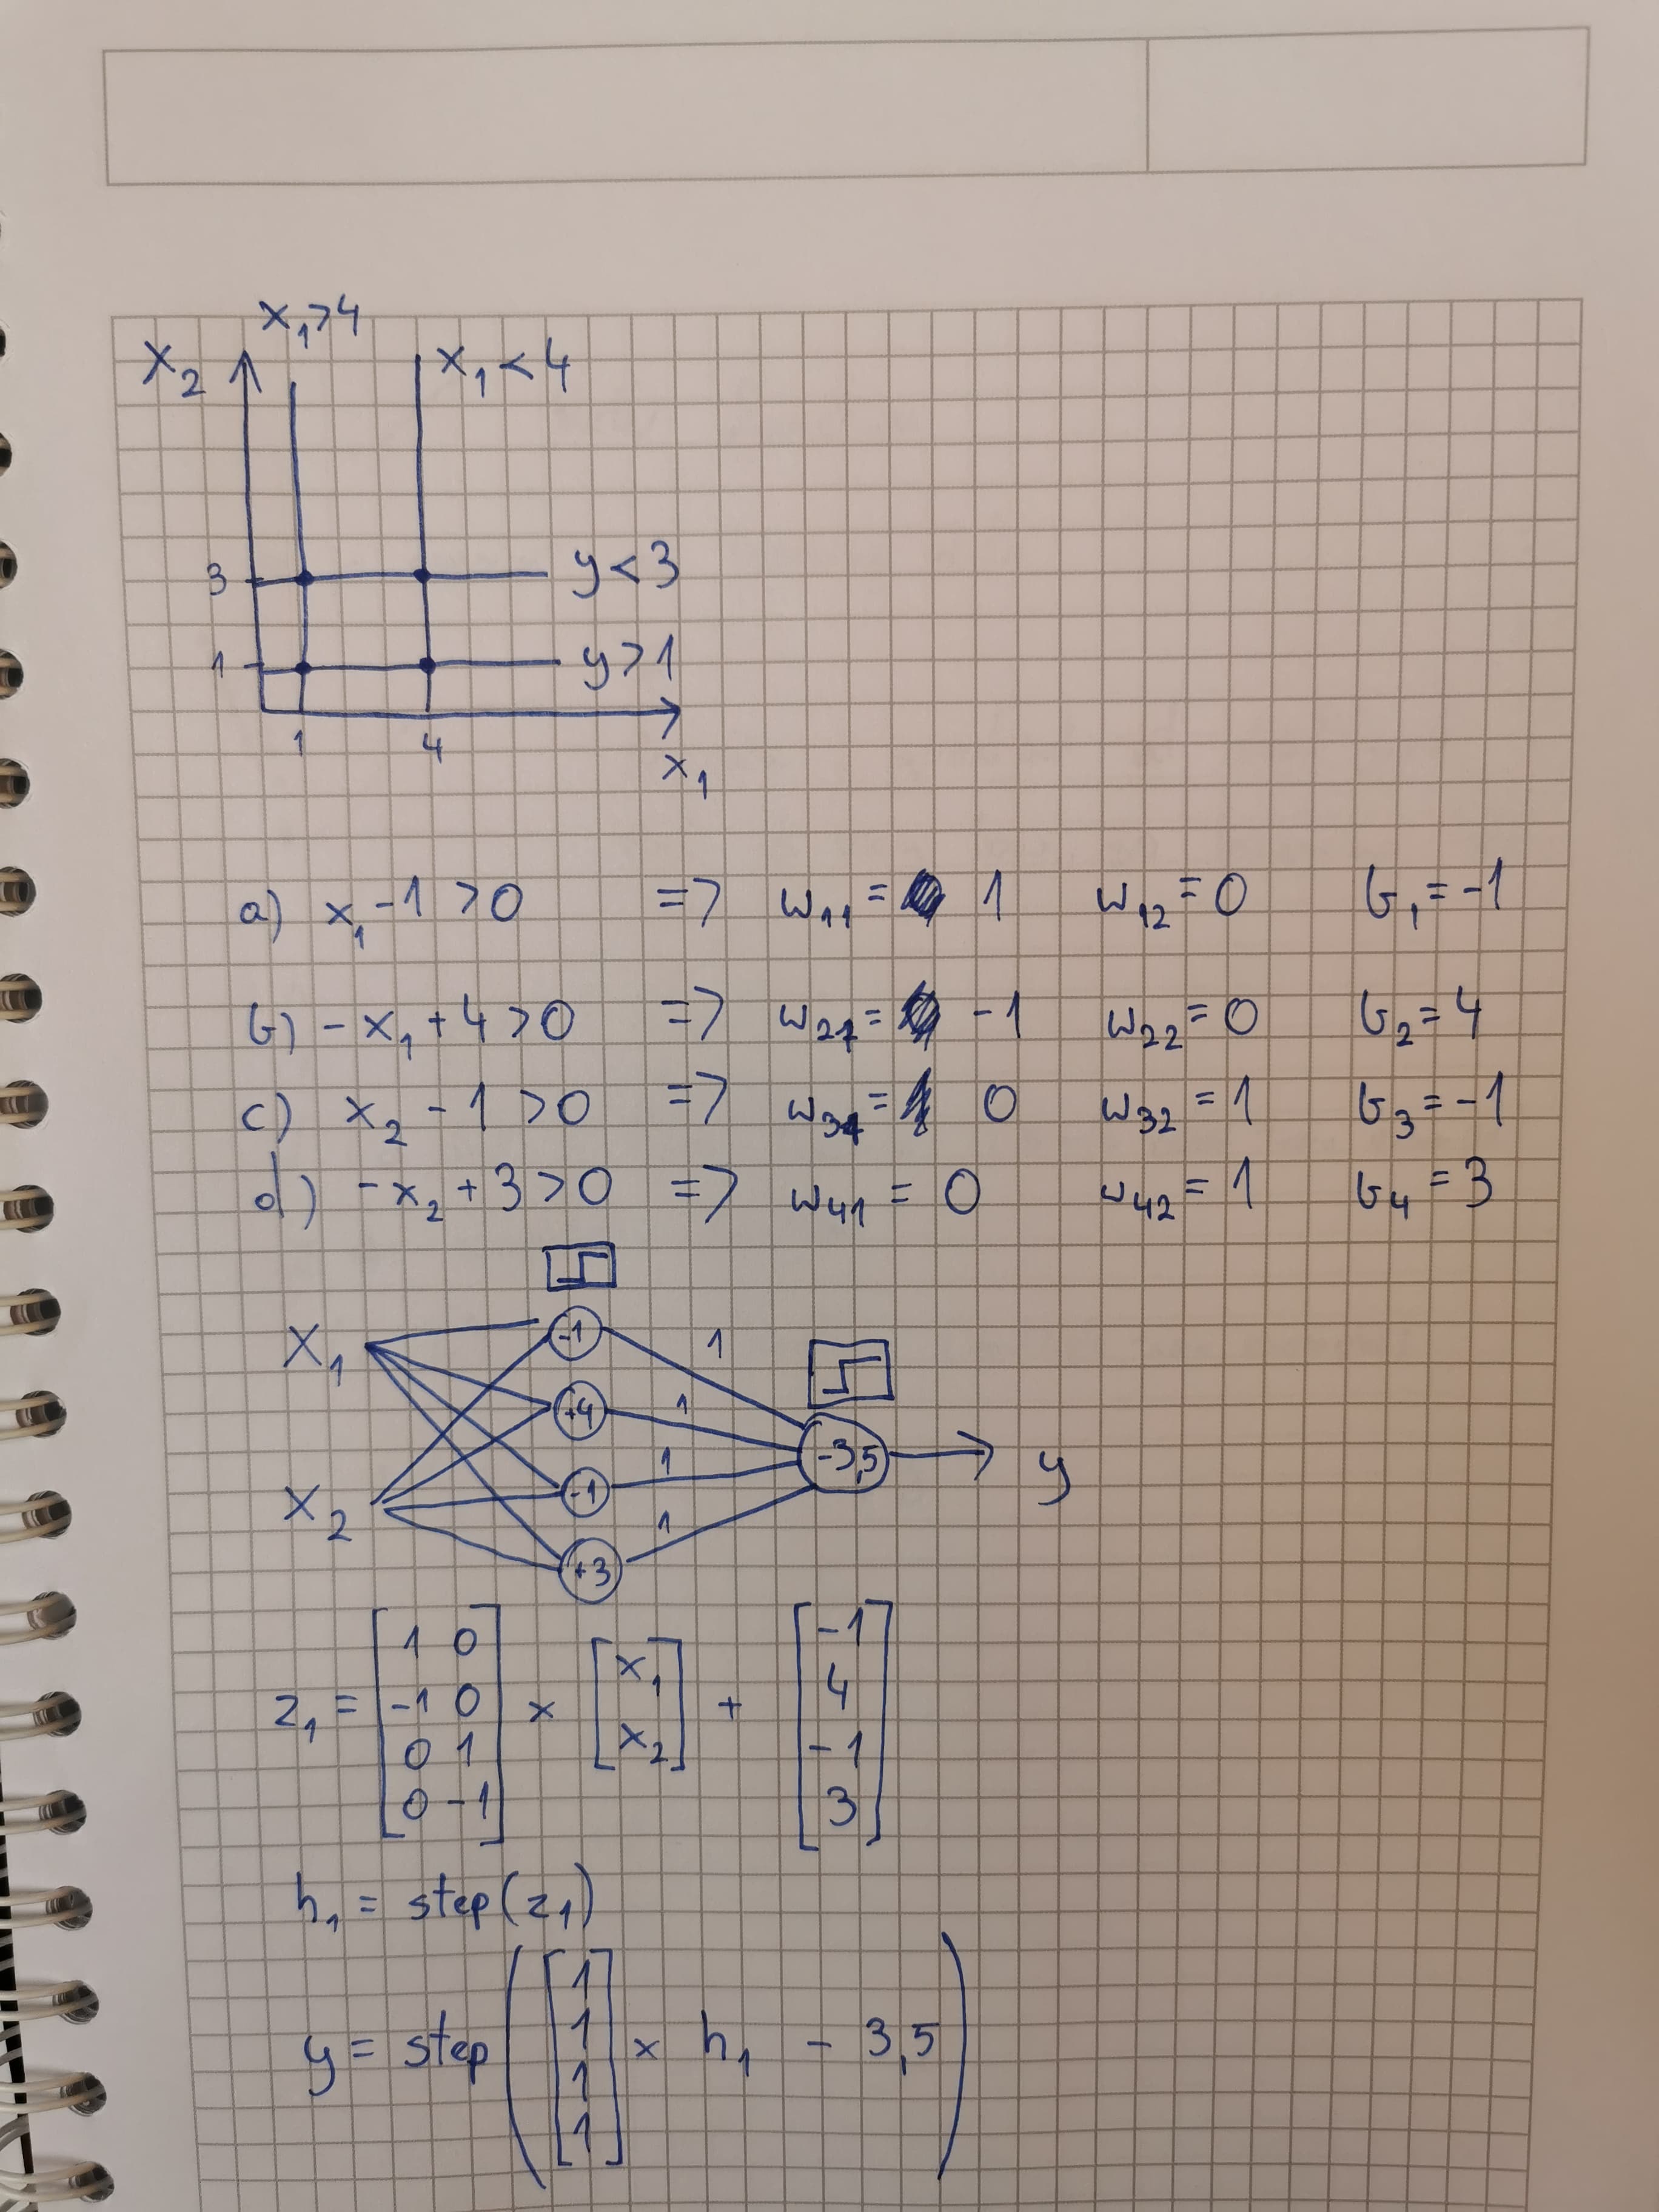 x₁>4
x₂ x₁ < 4
3 y < 3
1 y > 1
1 4
x₁
a) x₁ - 1 > 0 => w₁₁ = 1 w₁₂ = 0 b₁ = -1
b) -x₁ + 4 > 0 => w₂₁ = -1 w₂₂ = 0 b₂ = 4
c) x₂ - 1 > 0 => w₃₁ = 0 w₃₂ = 1 b₃ = -1
d) -x₂ + 3 > 0 => w₄₁ = 0 w₄₂ = 1 b₄ = 3
x₁ -1 1
+4 1
-1 1 -3,5 y
x₂ +3 1
z₁ = [1 0; -1 0; 0 1; 0 -1] × [x₁; x₂] + [-1; 4; -1; 3]
h₁ = step(z₁)
y = step([1; 1; 1; 1] × h₁ - 3,5)